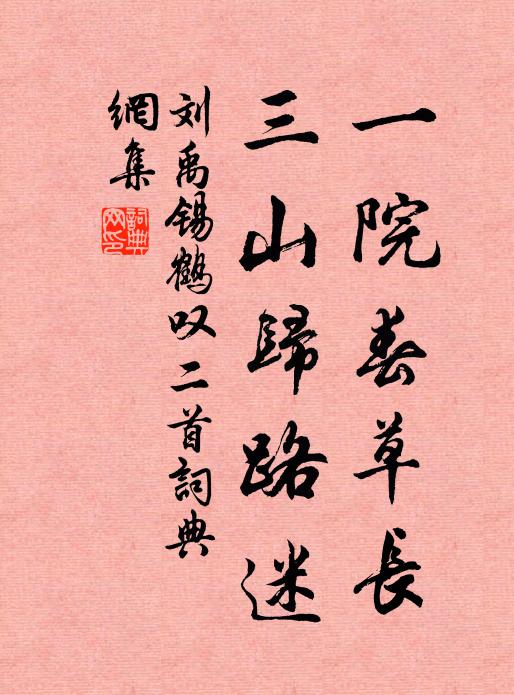 一院春草長
三山歸路迷
刘禹锡鶴叹二首詞典
網集
詞典網印